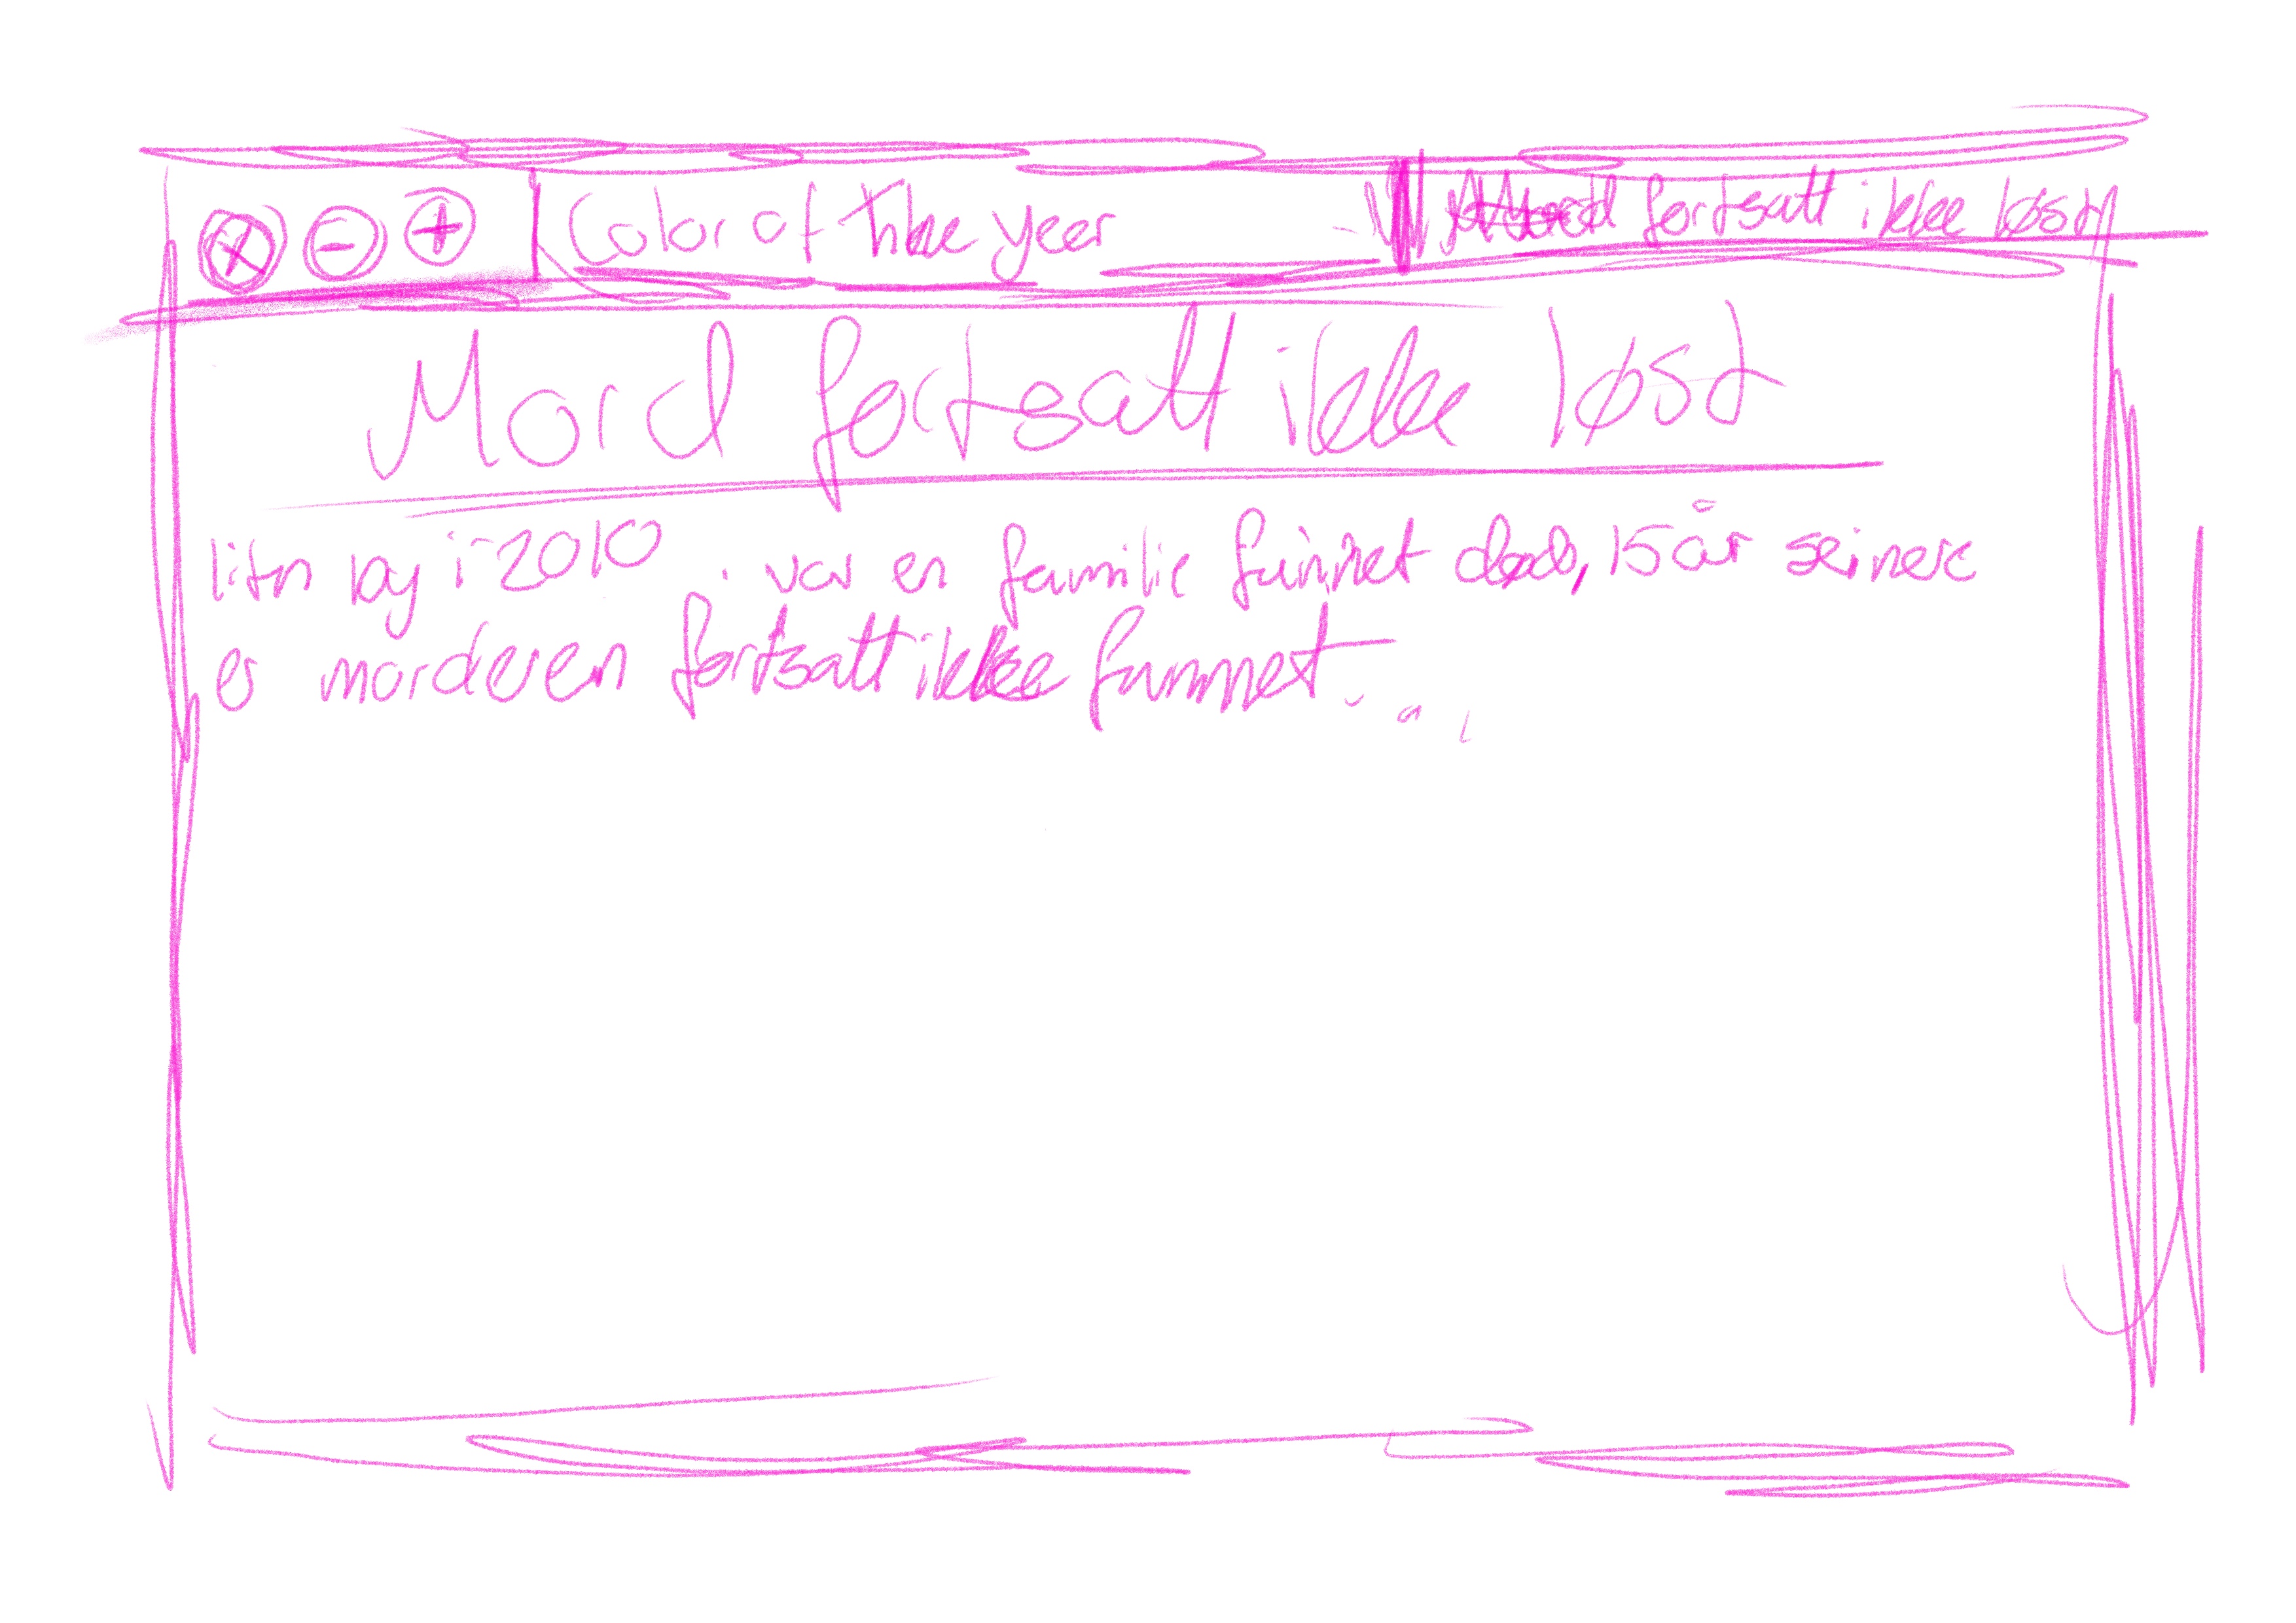 Color of the year
Mord fortsatt ikke løst
Mord fortsatt ikke løst
liten by i 2010. var en familie funnet død, 15 år seinere
er morderen fortsatt ikke funnet...